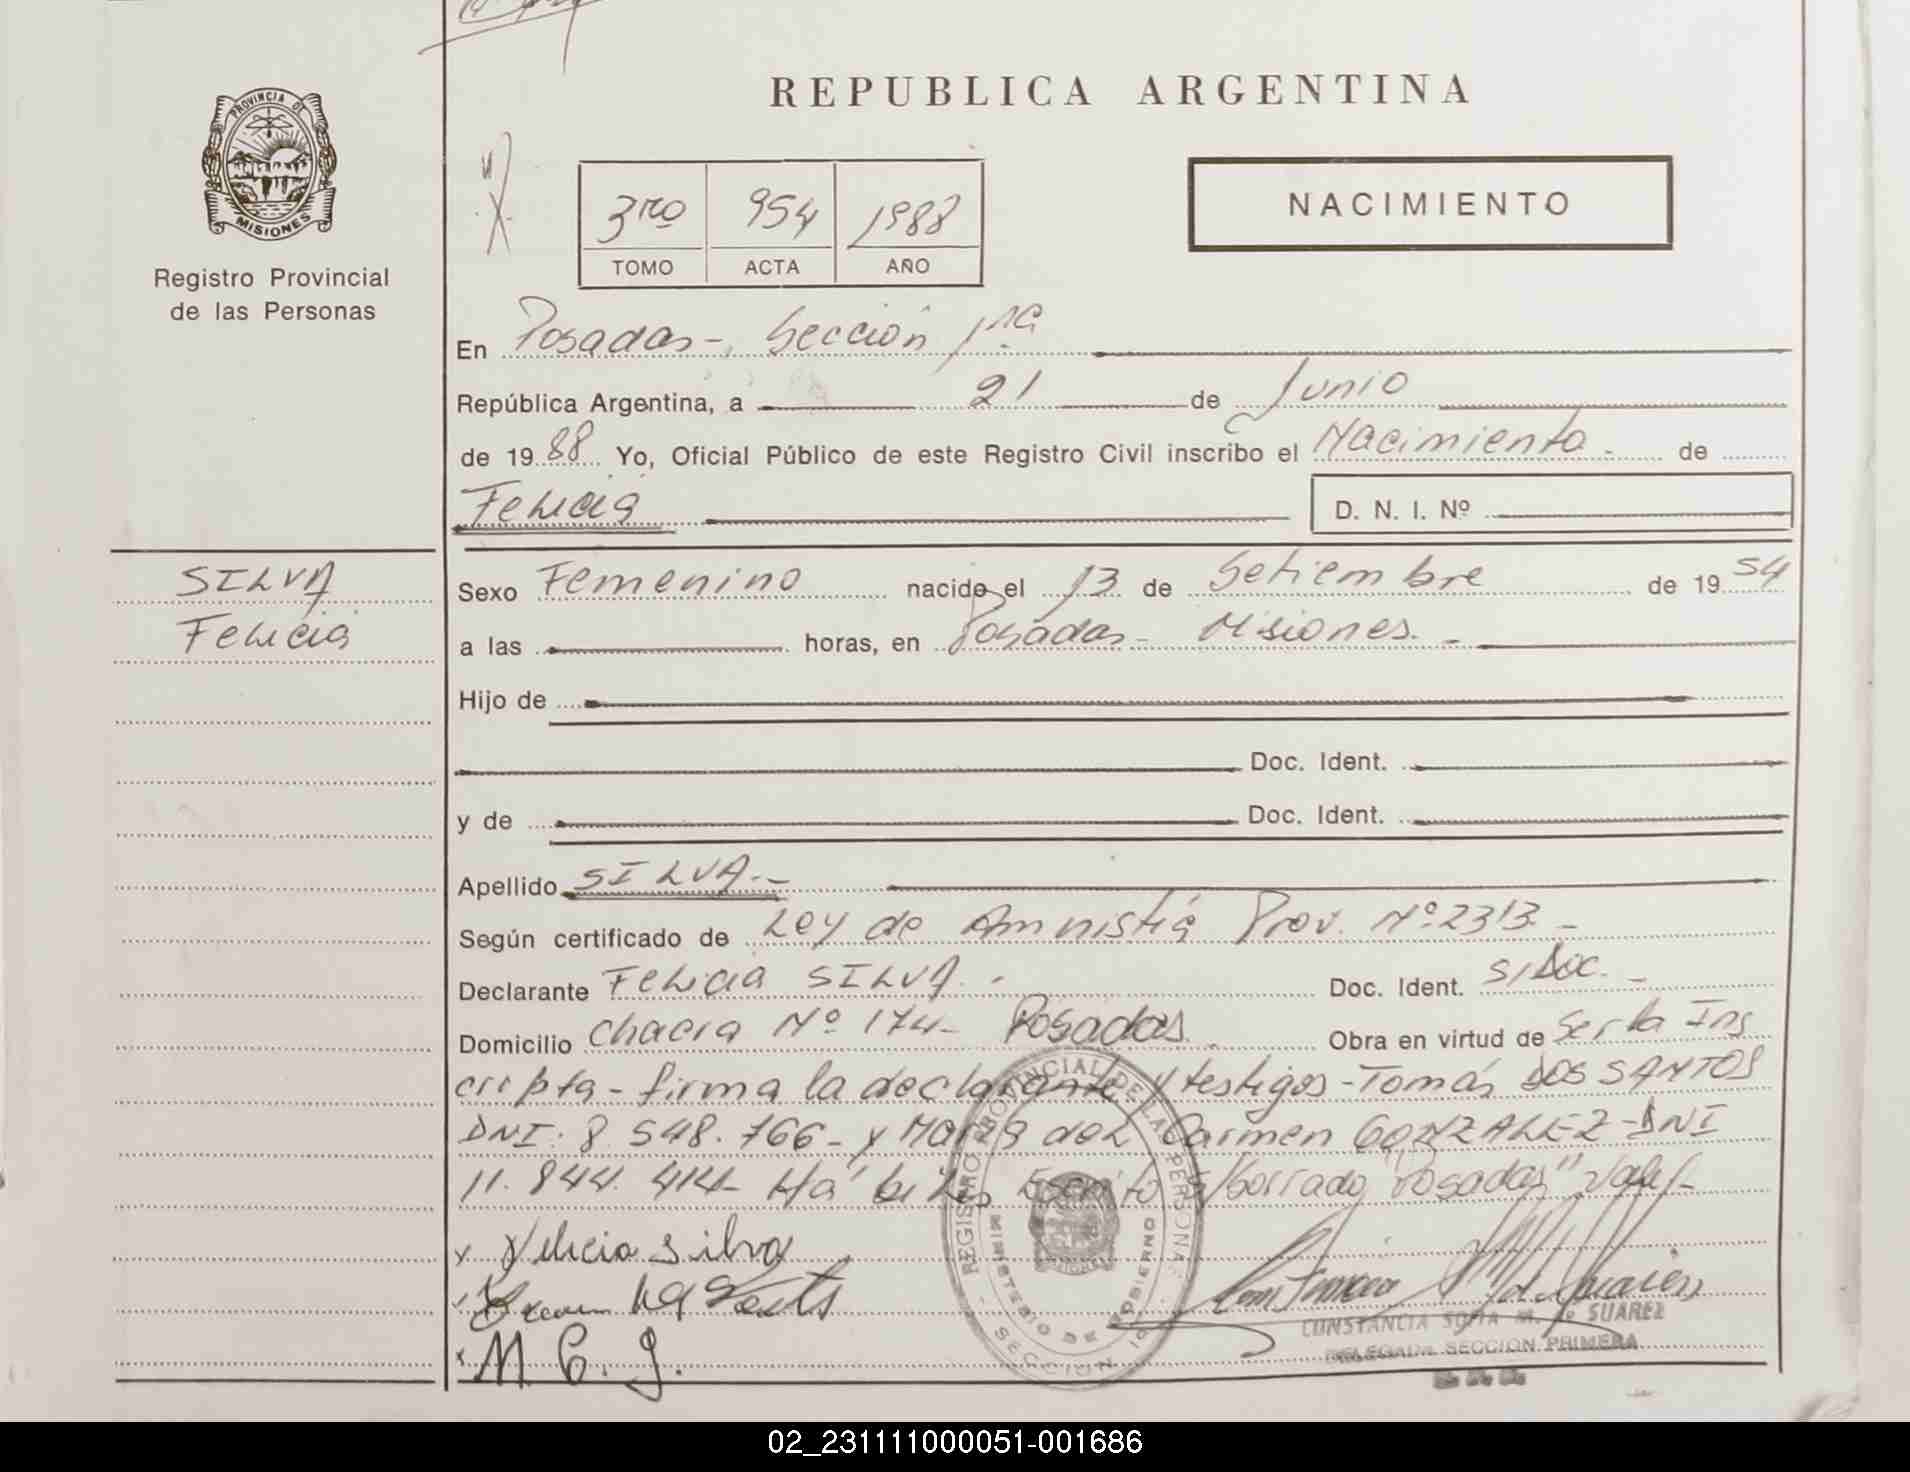 REPUBLICA ARGENTINA
PROVINCIA DE
MISIONES
Registro Provincial
de las Personas
3ro 954 1988
TOMO ACTA AÑO
NACIMIENTO
En Posadas-, Sección 1ra
República Argentina, a 21 de Junio
de 1988 Yo, Oficial Público de este Registro Civil inscribo el Nacimiento - de
Felicia
D. N. I. Nº
SILVA
Felicia
Sexo Femenino nacido el 13 de Setiembre de 1954
a las horas, en Posadas - Misiones. -
Hijo de
Doc. Ident.
y de Doc. Ident.
Apellido SILVA.-
Según certificado de Ley de Amnistiá Prov. Nº 2313 -
Declarante Felicia SILVA. - Doc. Ident. S/Doc. -
Domicilio Chacra Nº 174- Posadas. Obra en virtud de Ser la Ins
cripta - firma la declarante y testigos - Tomás DOS SANTOS
DNI: 8.548.766- y María del Carmen GONZALEZ - DNI
11.844.414- Há biles Escrito s/borrado "Posadas" Vale/-
x Felicia Silva
x M. C. G.
REGISTRO PROVINCIAL DE LAS PERSONAS
MINISTERIO DE GOBIERNO
SECCION 1º
CONSTANCIA SOFIA M. SUAREZ
DELEGADA SECCION PRIMERA
02_231111000051-001686